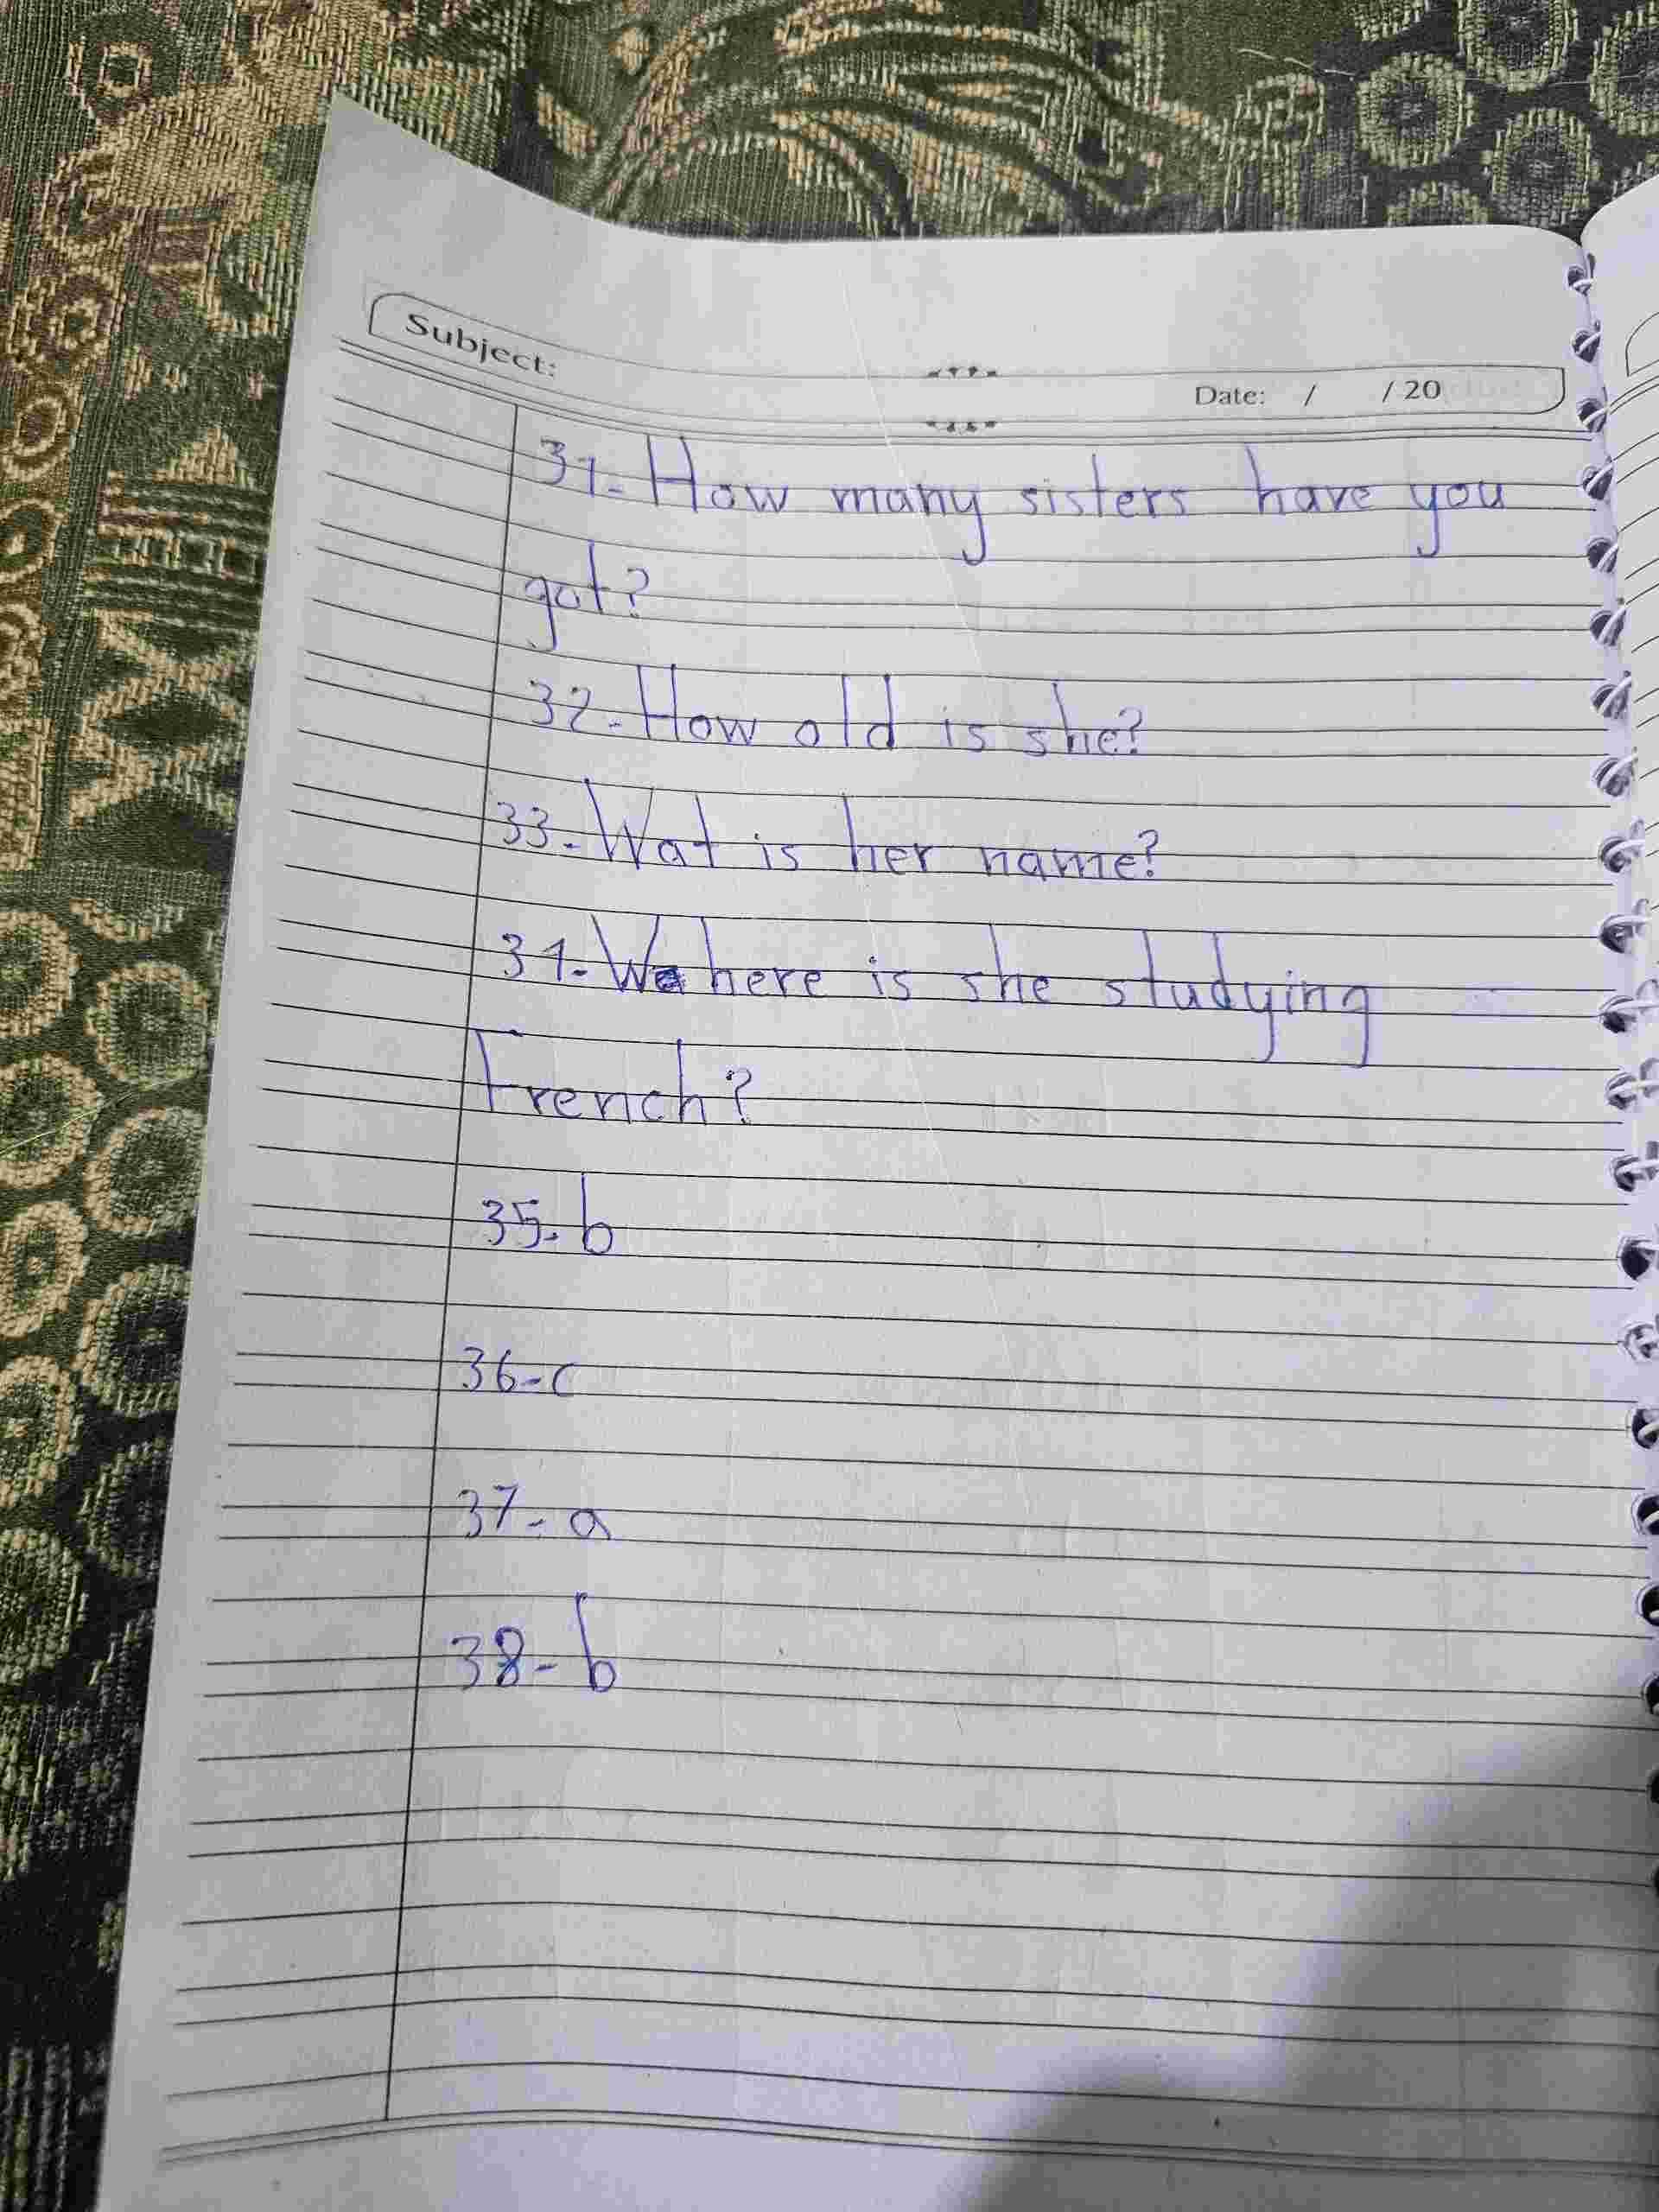 Subject:
Date: / / 20
31- How many sisters have you
got?
32- How old is she?
33- Wat is her name?
31- Where is she studying
French?
35- b
36- c
37- a
38- b